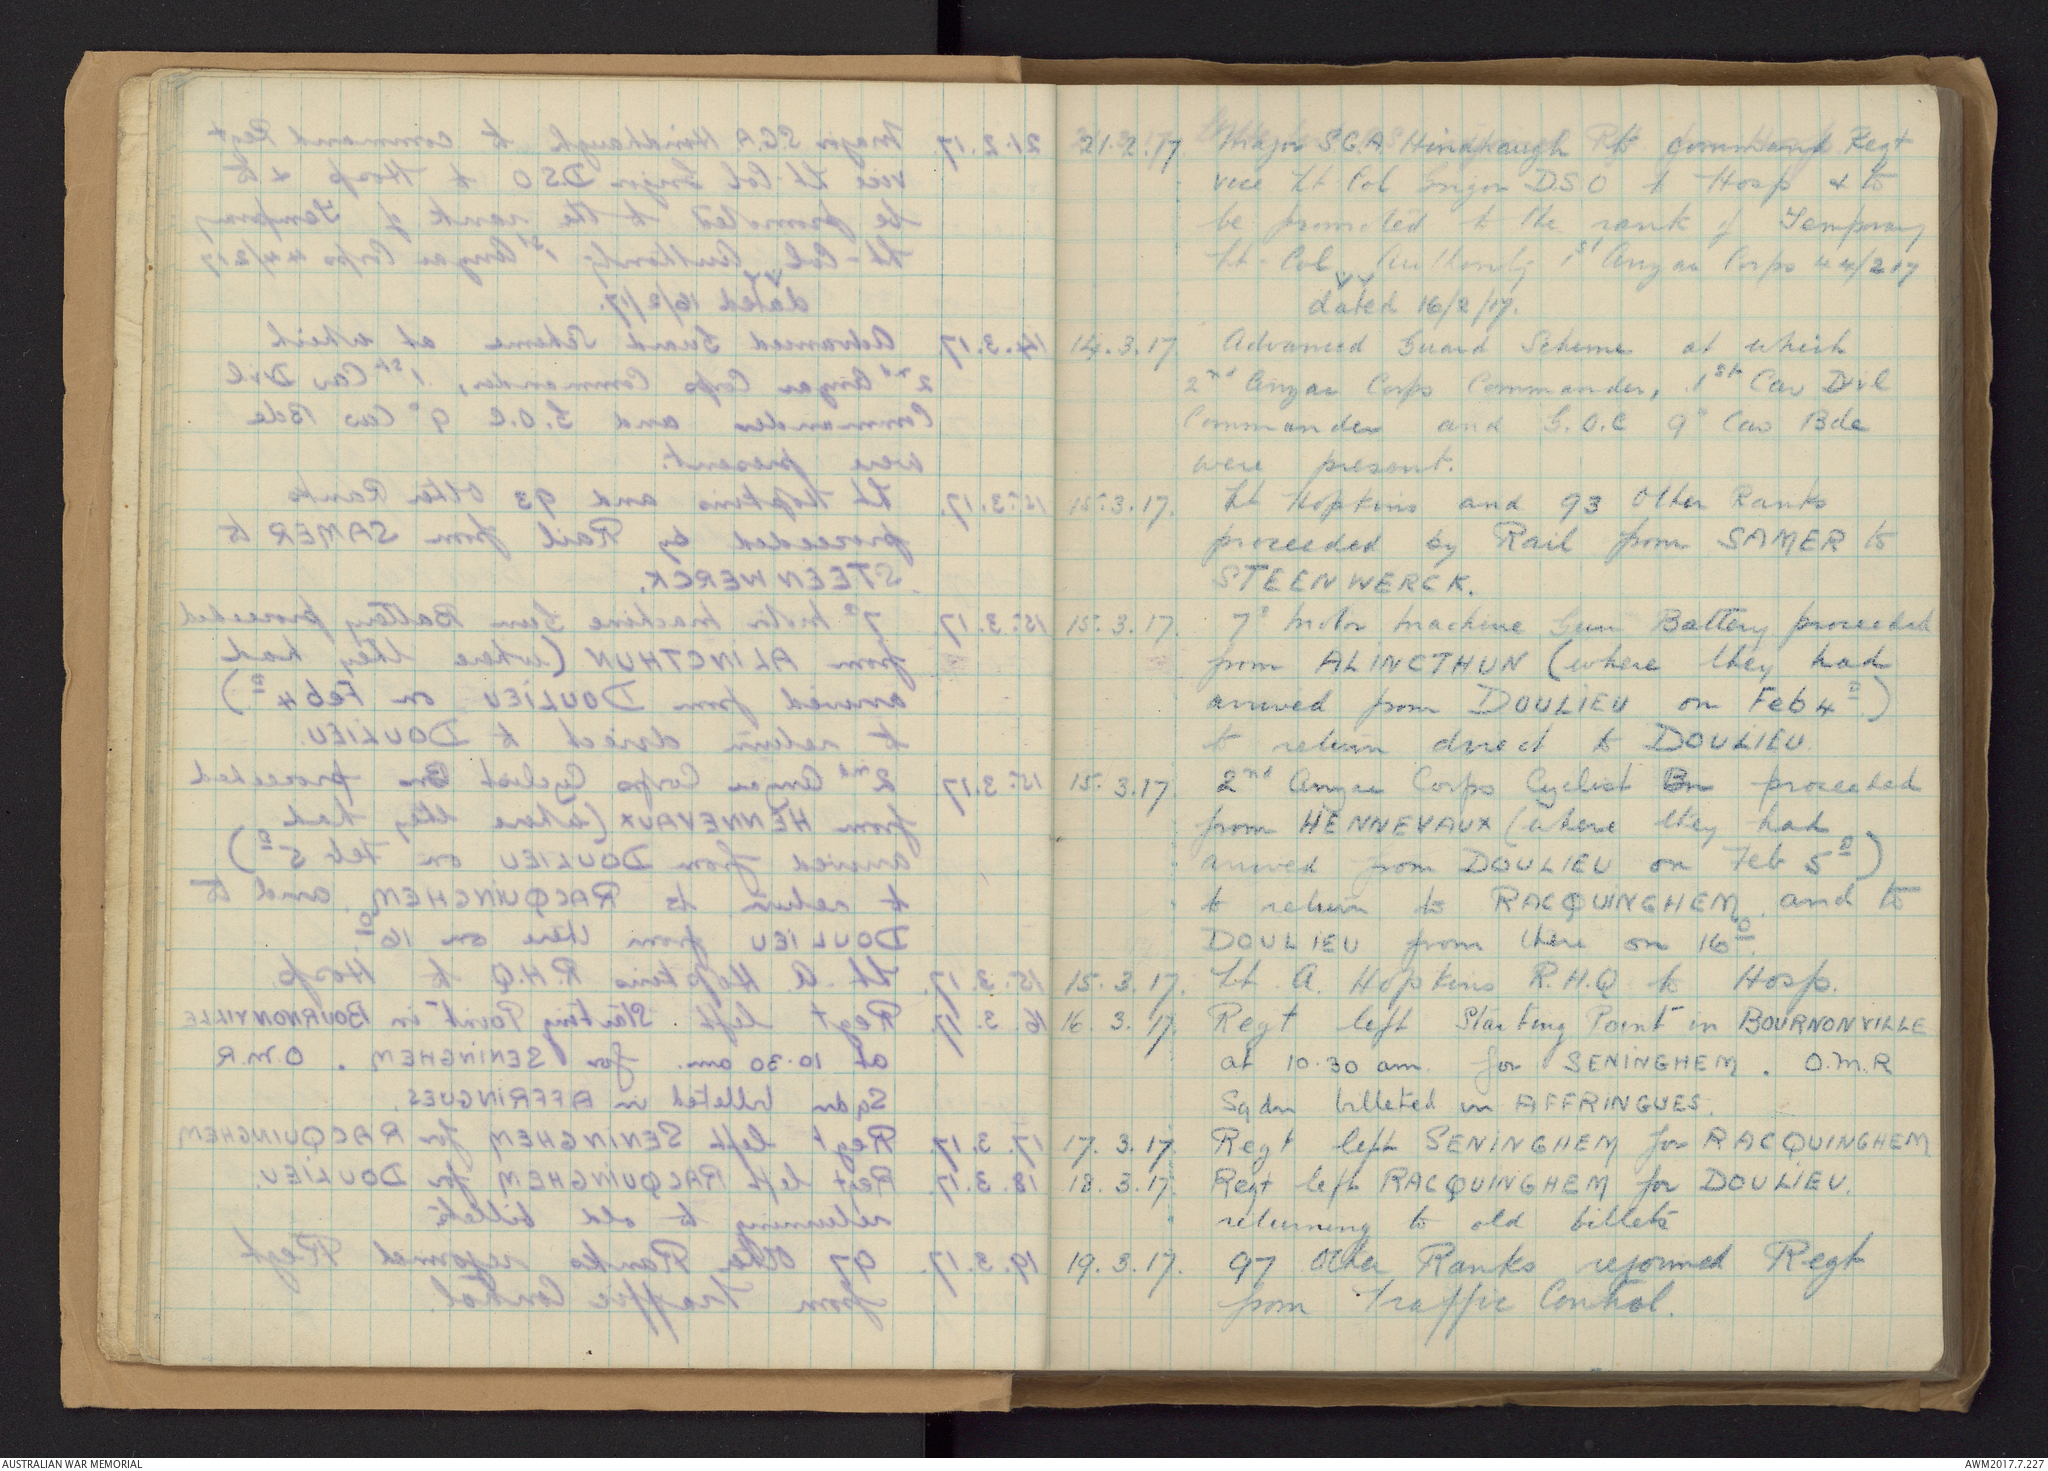 21.2.17 Major S.G.A Hindhaugh to command Regt
vice Lt Col Grigor D.S.O to Hosp & to
be promoted to the rank of Temporary
Lt-Col, Authority 1st Anzac Corps 44/217
dated 16/2/17.
14.3.17 Advanced Guard Scheme at which
2nd Anzac Corps Commander, 1st Cav Divl
Commander and G.O.C 9" Cav Bde
were present.
15.3.17. Lt Hopkins and 93 Other Ranks
proceeded by Rail from SAMER to
STEENWERCK.
15.3.17. 7" Motor Machine Gun Battery proceeded
from ALINCTHUN (where they had
arrived from DOULIEU on Feb 4th)
to return direct to DOULIEU.
15.3.17 2nd Anzac Corps Cyclist Bn proceeded
from HENNEVAUX (where they had
arrived from DOULIEU on Feb 5th)
to return to RACQUINGHEM and to
DOULIEU from there on 16th.
15.3.17. Lt. A. Hopkins R.H.Q to Hosp.
16.3.17. Regt left Starting Point in BOURNONVILLE
at 10.30 am. for SENINGHEM. O.M.R
Sqdn billeted in AFFRINGUES.
17.3.17. Regt left SENINGHEM for RACQUINGHEM
18.3.17. Regt left RACQUINGHEM for DOULIEU.
returning to old billets
19.3.17. 97 Other Ranks rejoined Regt
from Traffic Control.
AUSTRALIAN WAR MEMORIAL
AWM2017.7.227